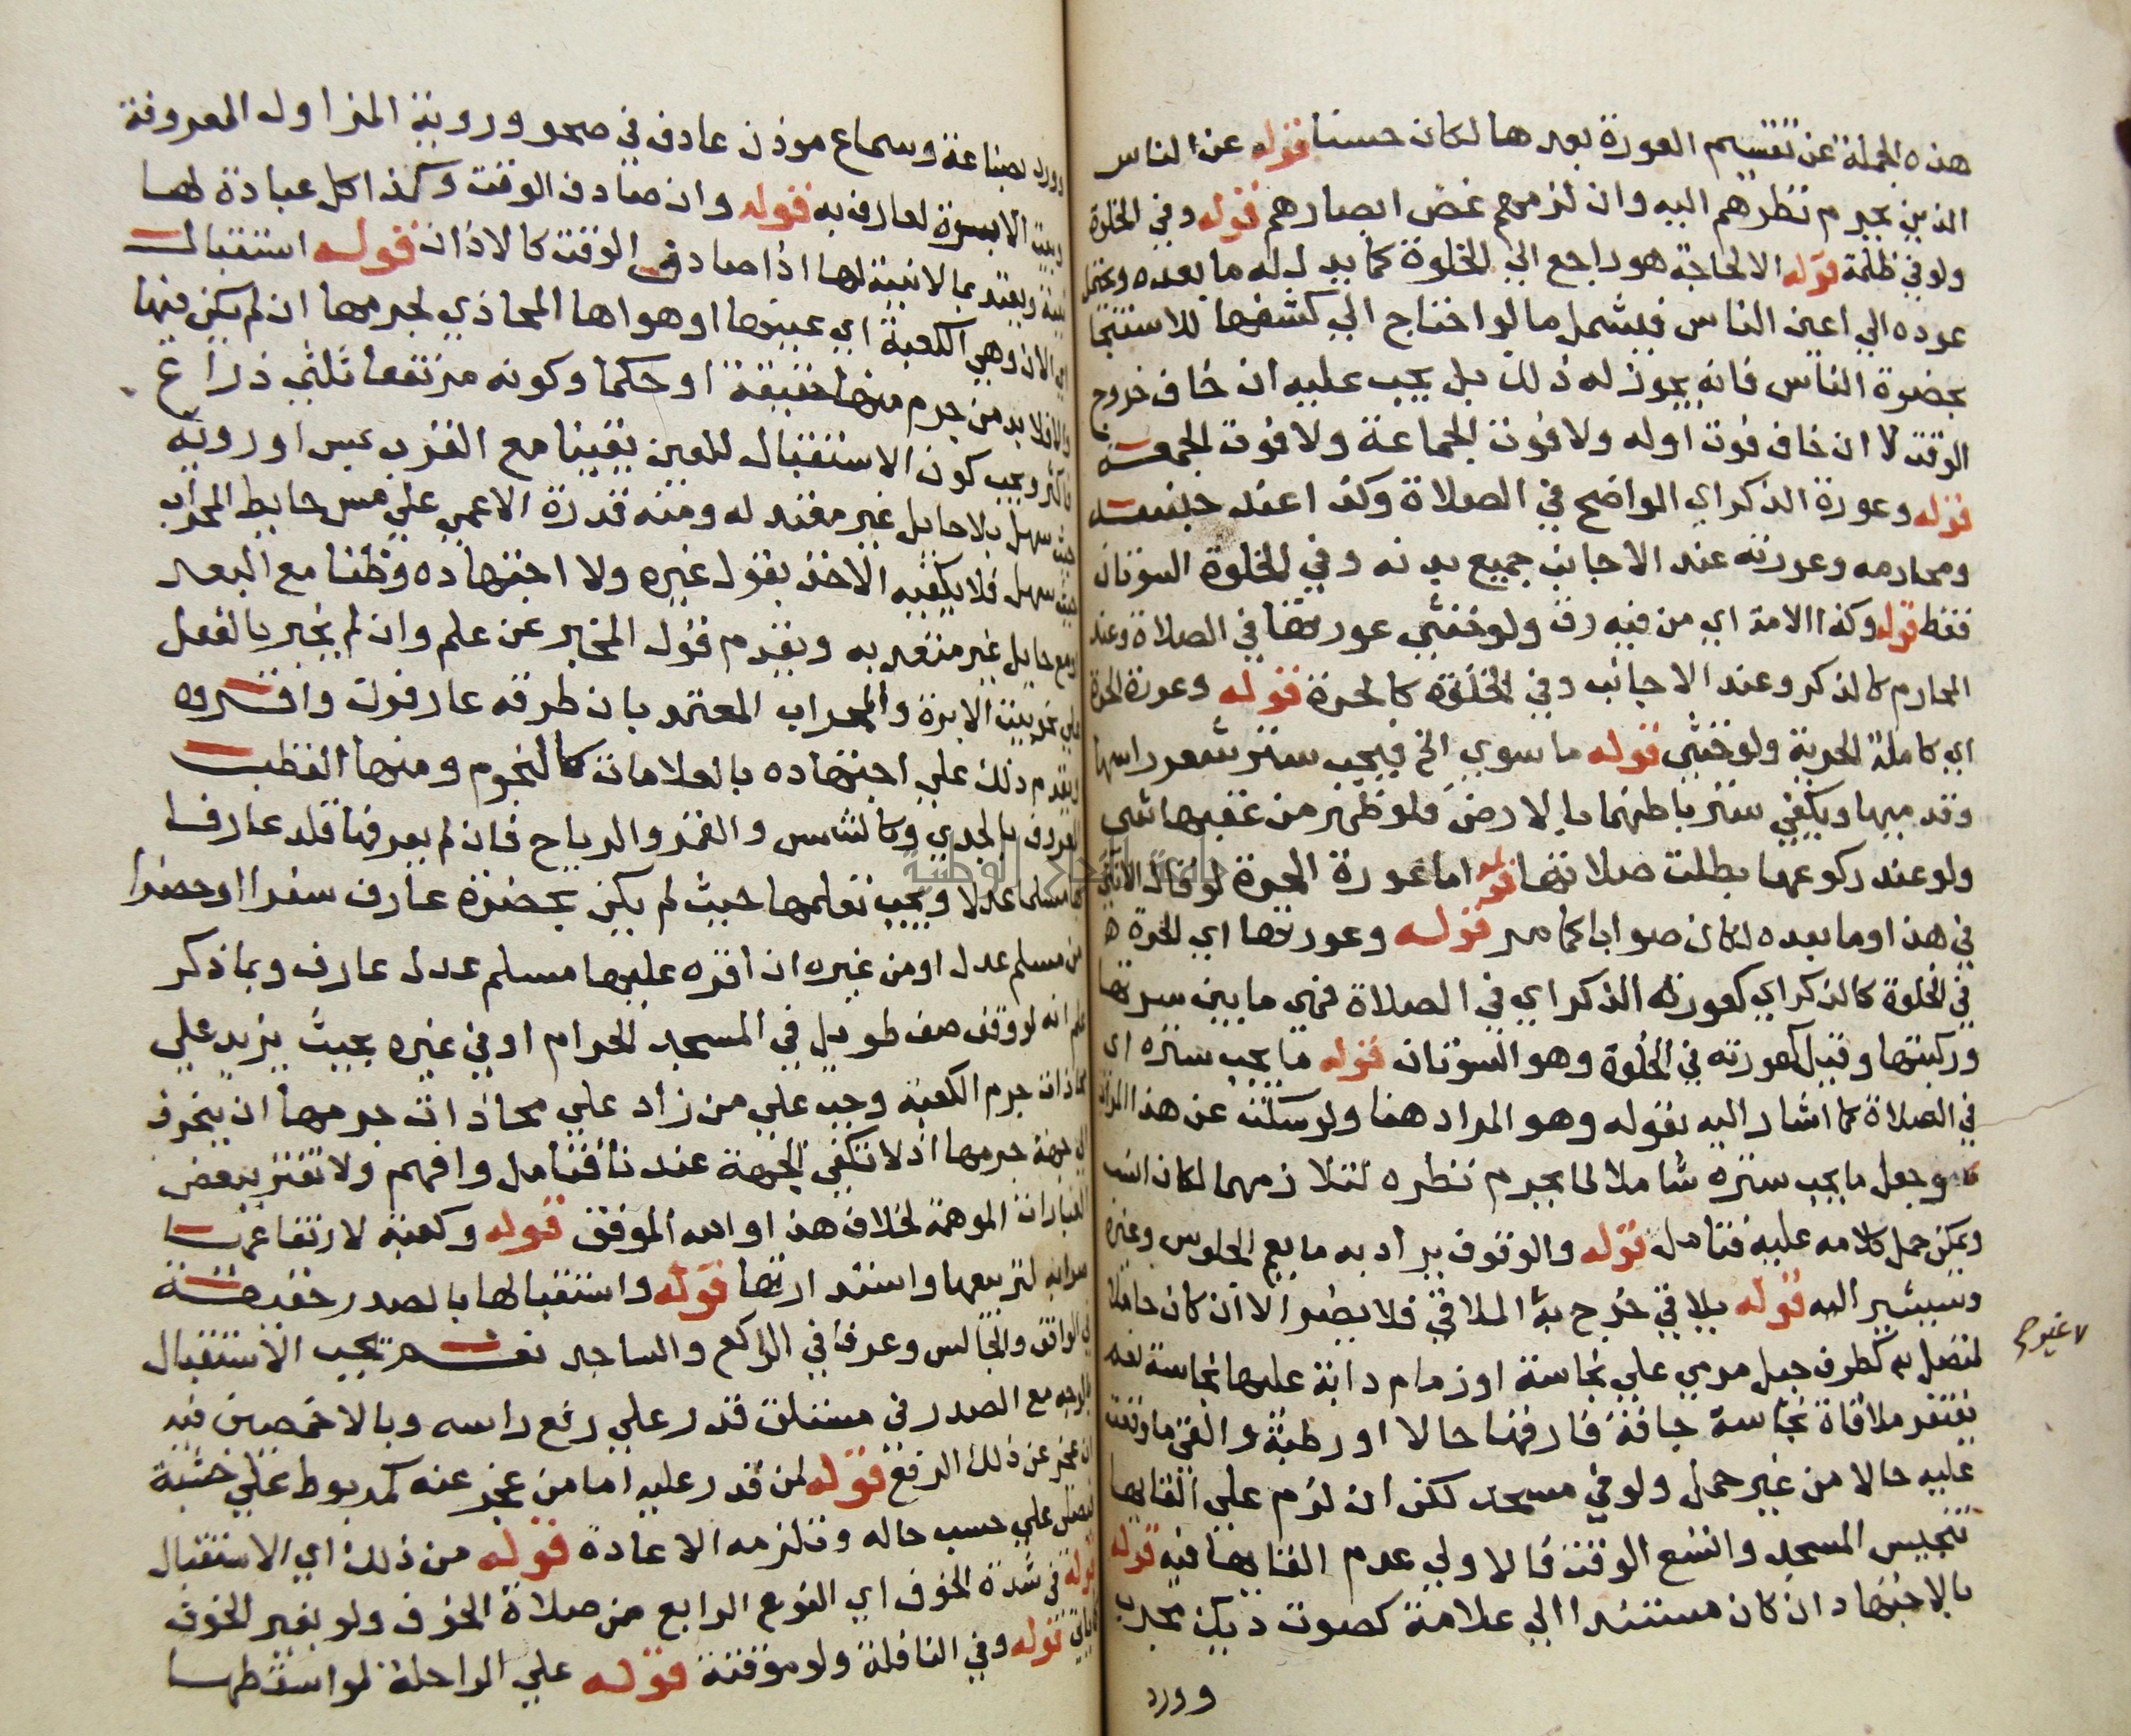 هذه الجملة عن تقسيم العورة بعدها لكان حسنا قوله عن الناس
الذين يحرم نظرهم اليه وان لزمهم غض ابصارهم قوله وفي الخلوة
ولو في ظلمة قوله الا لحاجة هو راجع الي الخلوة كما يدل له ما بعده ويحتمل
عوده الي اعين الناس فيشمل ما لو احتاج الي كشفها للاستنجا
بحضرة الناس فانه يجوز له ذلك بل يجب عليه ان خاف خروج
الوقت لا ان خاف فوت اوله ولا فوت الجماعة ولا فوت الجمعة
قوله وعورة الذكر اي الواضح في الصلاة وكذا عند جنسه
ومحارمه وعورته عند الاجانب جميع بدنه وفي الخلوة السوتان
فقط قوله وكذا الامة اي من فيه رق ولو خنثي عورتها في الصلاة وعند
المحارم كالذكر وعند الاجانب وفي الخلوة كالحرة قوله وعورة الحرة
اي كاملة الحرية ولو خنثي قوله ما سوي الخ فيجب ستر شعر راسها
وقدميها ويكفي ستر باطنهما بالارض فلو ظهر من عقبها شي
ولو عند ركوعها بطلت صلاتها قوله اما عورة الحرة لو قال الانثي
في هذا وما بعده لكان صوابا كما مر قوله وعورتها اي الحرة
في الخلوة كالذكر اي كعورة الذكر اي في الصلاة فهي ما بين سرتها
وركبتها وقيل كعورته في الخلوة وهو السوتان قوله ما يجب ستره اي
في الصلاة كما اشار اليه بقوله وهو المراد هنا ولو سكت عن هذا المراد
وجعل ما يجب ستره شاملا لما يحرم نظره لتلازمهما لكان انسب
ويمكن حمل كلامه عليه فتامل قوله والوقوف يراد به ما يعم الجلوس وغيره
وسيشير اليه قوله بلاقي خرج به الملاقي فلا يضر الا ان كان حاملا
لمتصل به كطرف حبل مرمي علي نجاسة او زمام دابة عليها نجاسة نعم
يغتفر ملاقاة نجاسة جافة فارقها حالا او رطبة والقي ما وقعت
عليه حالا من غير حمل ولو في مسجد لكن ان لزم علي القايها
تنجيس المسجد واتسع الوقت فالاولي عدم القايها فيه قوله
بالاجتهاد ان كان مستندا الي علامة كصوت ديك مجرب
وورد
وورد لصناعة وسماع موذن عارف في صحو ورويه المزاوله المعروفة
وبيت الابرة لعارف به قوله وان صادف الوقت وكذا كل عبادة لها
نية ويعتد بما لا نية لها اذا صادف الوقت كالاذان قوله استقبال
اي الان وهي الكعبة اي عينها او هواها المحاذي لجرمها ان لم يكن فيها
والا فلا بد من جرم منها حقيقة او حكما وكونه مرتفعا ثلثي ذراع
فاكثر ويجب كون الاستقبال للعين يقينا مع القرب بمس او روية
حيث سهل بلا حايل غير معتد له ومنه قدرة الاعمي علي مس حايط المحراب
حيث سهل فلا يكفيه الاخذ بقول غيره ولا اجتهاده وظنا مع البعد
او مع حايل غير متعد به ويقدم قول المخبر عن علم وان لم يخبر بالفعل
علي نحو بيت الابرة والمحراب المعتمد بان طرقه عارفون واقروه
ويقدم ذلك علي اجتهاده بالعلامات كالنجوم ومنها القطب
المعروف بالجدي وكالشمس والقمر والرياح فان لم يعرفها قلد عارفا
بها مسلما عدلا ويجب تعلمها حيث لم يكن بحضرة عارف سفرا او حضرا
من مسلم عدل او من غيره ان اقره عليها مسلم عدل عارف وبما ذكر
علم انه لو وقف صف طويل في المسجد الحرام او في غيره بحيث يزيد علي
محاذات جرم الكعبة وجب علي من زاد علي محاذات جرمها ان ينحرف
الي جهة جرمها اذ لا تكفي الجهة عندنا فتامل وافهم ولا تغتر ببعض
العبارات الموهمة لخلاف هذا والله الموفق قوله وكعبة لارتفاعها
صوابه لتربيعها واستدارتها قوله واستقبالها بالصدر حقيقة
في الواقف والجالس وعرفا في الراكع والساجد نعم يجب الاستقبال
بالوجه مع الصدر في مستلق قدر علي رفع راسه وبالاخمصين فيه
ان عجز عن ذلك الرفع قوله لمن قدر عليه اما من عجز عنه كمربوط علي خشبة
فيصلي علي حسب حاله وتلزمه الاعادة قوله من ذلك اي الاستقبال
قوله في شدة الخوف اي النوع الرابع من صلاة الخوف ولو بغير الخوف
قوله وفي النافلة ولو موقتة قوله علي الراحلة لو اسقطها